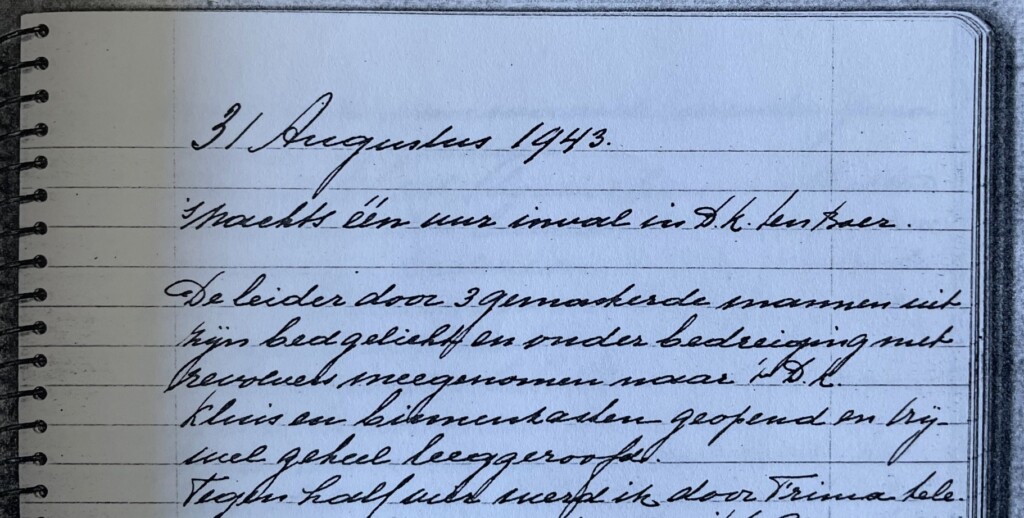 31 Augustus 1943.
's Nachts één uur inval in D.K. ten Boer.
De leider door 3 gemaskerde mannen uit
zijn bed gelicht en onder bedreiging met
revolvers meegenomen naar 't D.K.
Kluis en binnenkasten geopend en vrij-
wel geheel leeggeroofd.
Tegen half uur werd ik door Trima tele-